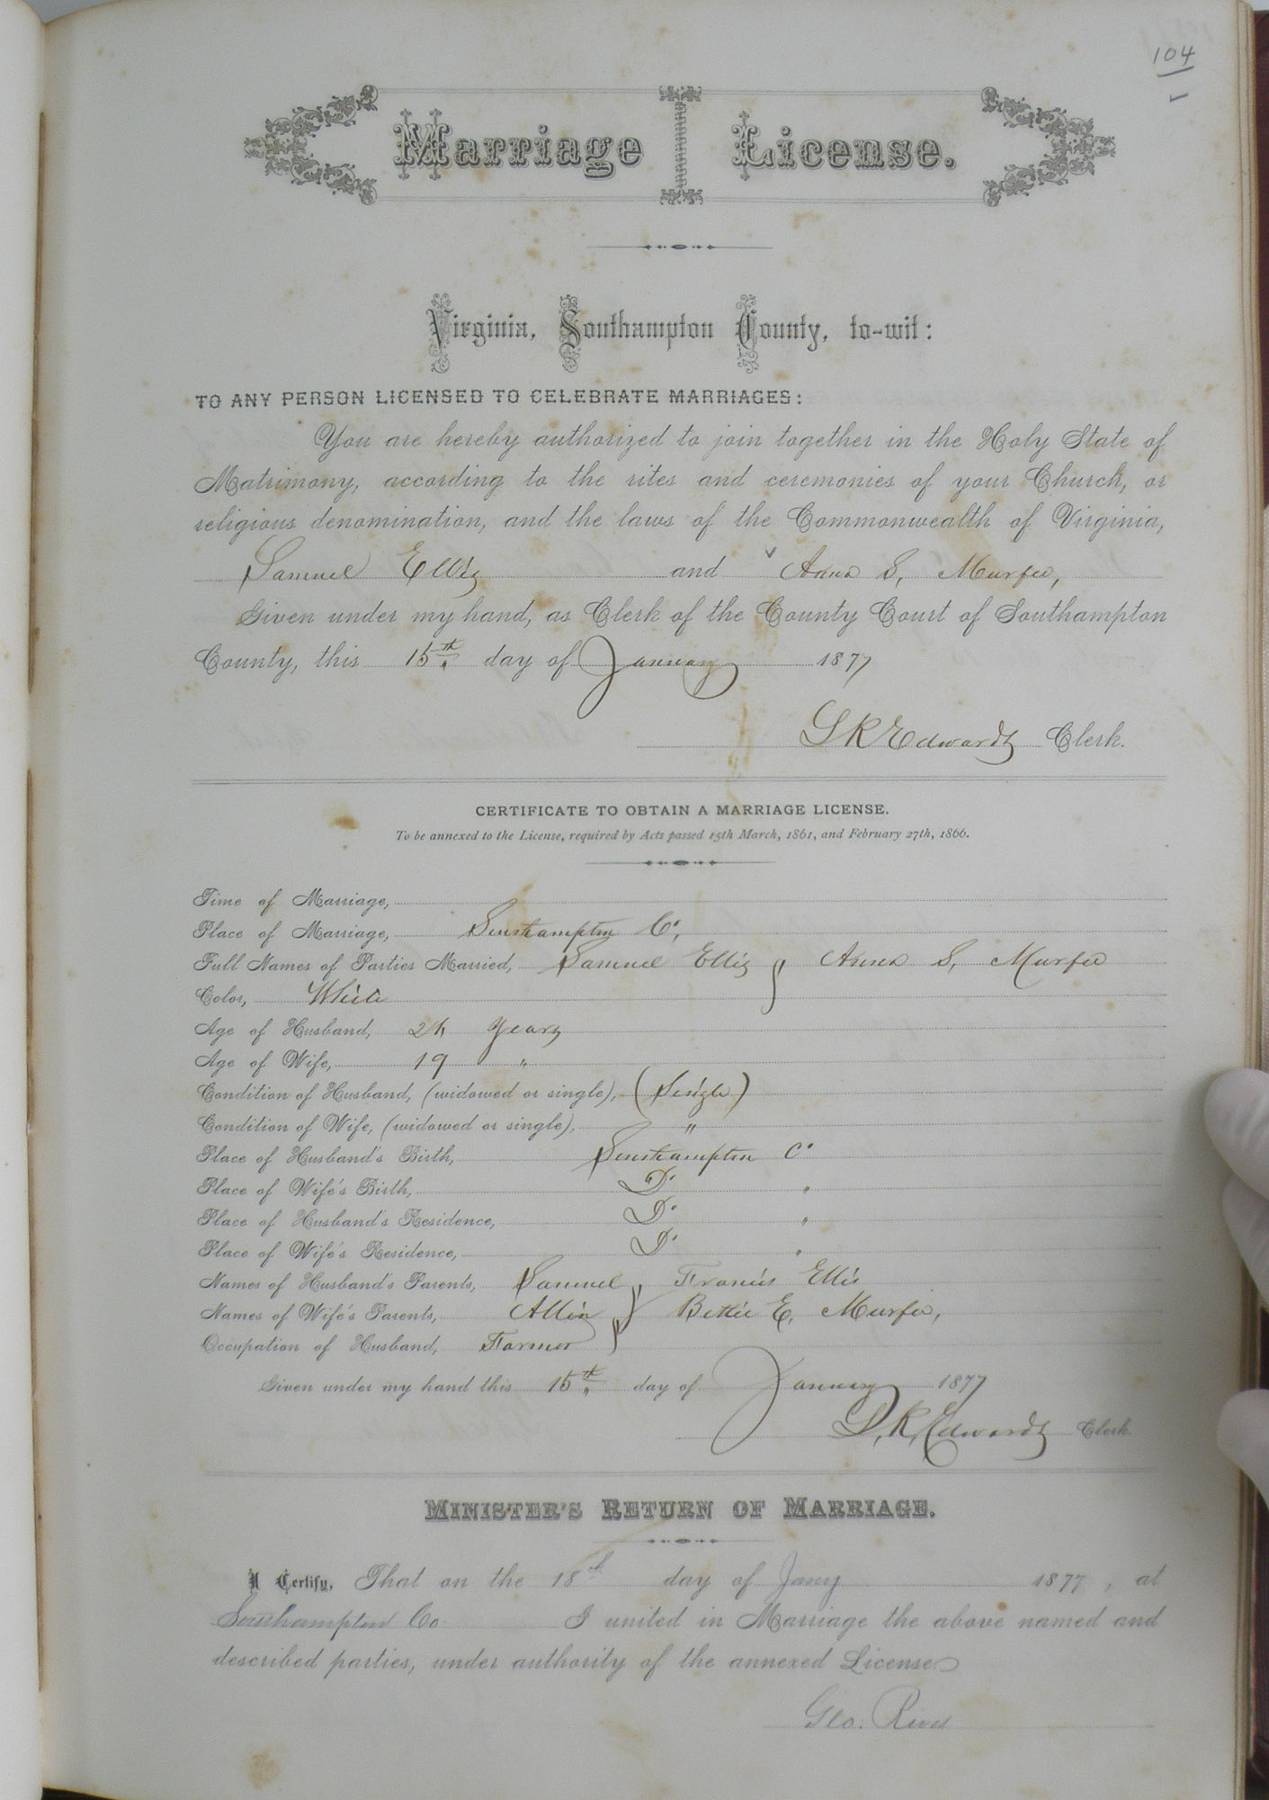 104
Marriage License.
Virginia, Southampton County, to-wit:
TO ANY PERSON LICENSED TO CELEBRATE MARRIAGES:
You are hereby authorized to join together in the Holy State of
Matrimony, according to the rites and ceremonies of your Church, or
religious denomination, and the laws of the Commonwealth of Virginia,
Samuel Ellis and Anna S, Murfee,
Given under my hand, as Clerk of the County Court of Southampton
County, this 15th day of January 1877
L R Edwards Clerk.
CERTIFICATE TO OBTAIN A MARRIAGE LICENSE.
To be annexed to the License, required by Acts passed 15th March, 1861, and February 27th, 1866.
Time of Marriage,
Place of Marriage, Southampton Co,
Full Names of Parties Married, Samuel Ellis } Anna S, Murfee
Color, White
Age of Husband, Years
Age of Wife, 19 "
Condition of Husband, (widowed or single), (Single)
Condition of Wife, (widowed or single), "
Place of Husband's Birth, Southampton Co
Place of Wife's Birth, Do "
Place of Husband's Residence, Do "
Place of Wife's Residence, Do "
Names of Husband's Parents, Samuel } Francis Ellis
Names of Wife's Parents, } Bettie E, Murfee,
Occupation of Husband, Farmer
Given under my hand this 15th day of January 1877
L, R, Edwards Clerk
MINISTER'S RETURN OF MARRIAGE.
I Certify, That on the 18th day of Jany 1877, at
Southampton Co I united in Marriage the above named and
described parties, under authority of the annexed License
Geo.